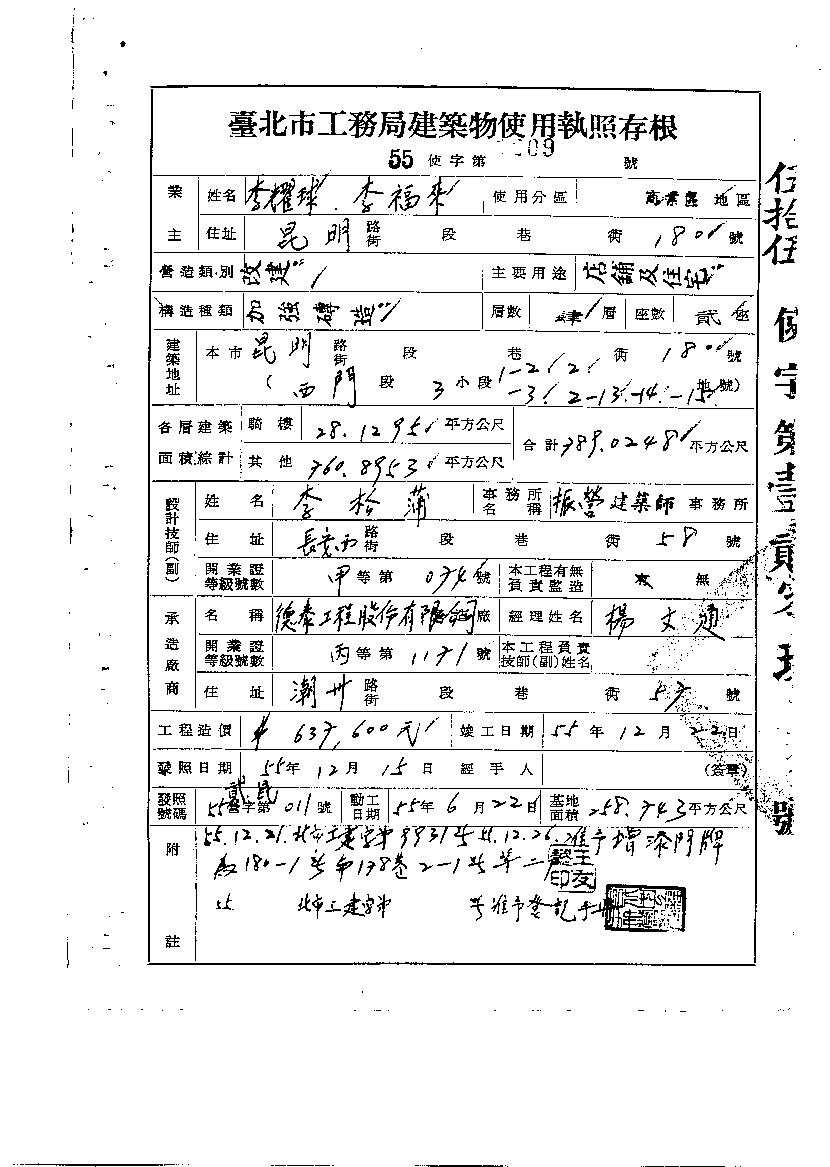 臺北市工務局建築物使用執照存根
55 使字第 1209 號
業主 姓名 李耀球．李福來 使用分區 商業區 地區
住址 昆明 路街 段 巷 街 180 號
營造類別 改建 主要用途 店舖及住宅
構造種類 加強磚造 層數 肆 層 座數 貳 座
建築地址 本市 昆明 路街 段 巷 街 180 號
(西門 段 3 小段 1-2 2 -3 2-13 -14 -15 地號)
各層建築面積綜計 騎樓 28.1295 平方公尺 合計 789.0248 平方公尺
其他 760.8953 平方公尺
設計技師(副) 姓名 李松蒲 事務所名稱 振營建築師 事務所
住址 長安西 路街 段 巷 街 58 號
開業證等級號數 甲 等第 074 號 本工程有無負責監造 有 無
承造廠商 名稱 德泰工程股份有限公司 廠 經理姓名 楊文通
開業證等級號數 丙 等第 1171 號 本工程負責技師(副)姓名
住址 潮州 路街 段 巷 街 57 號
工程造價 637,600元 竣工日期 55 年 12 月 22 日
發照日期 55 年 12 月 15 日 經手人 (簽章)
發照號碼 55 營字第 011 號 動工日期 55 年 6 月 22 日 基地面積 258.743 平方公尺
附註 55.12.21.北市工建字第 9931 12.26.准予增添門牌
為180-1號第178巷2-1號等二
55 北市工建字第 號准予登記
伍拾伍 使字第壹貳零玖 號